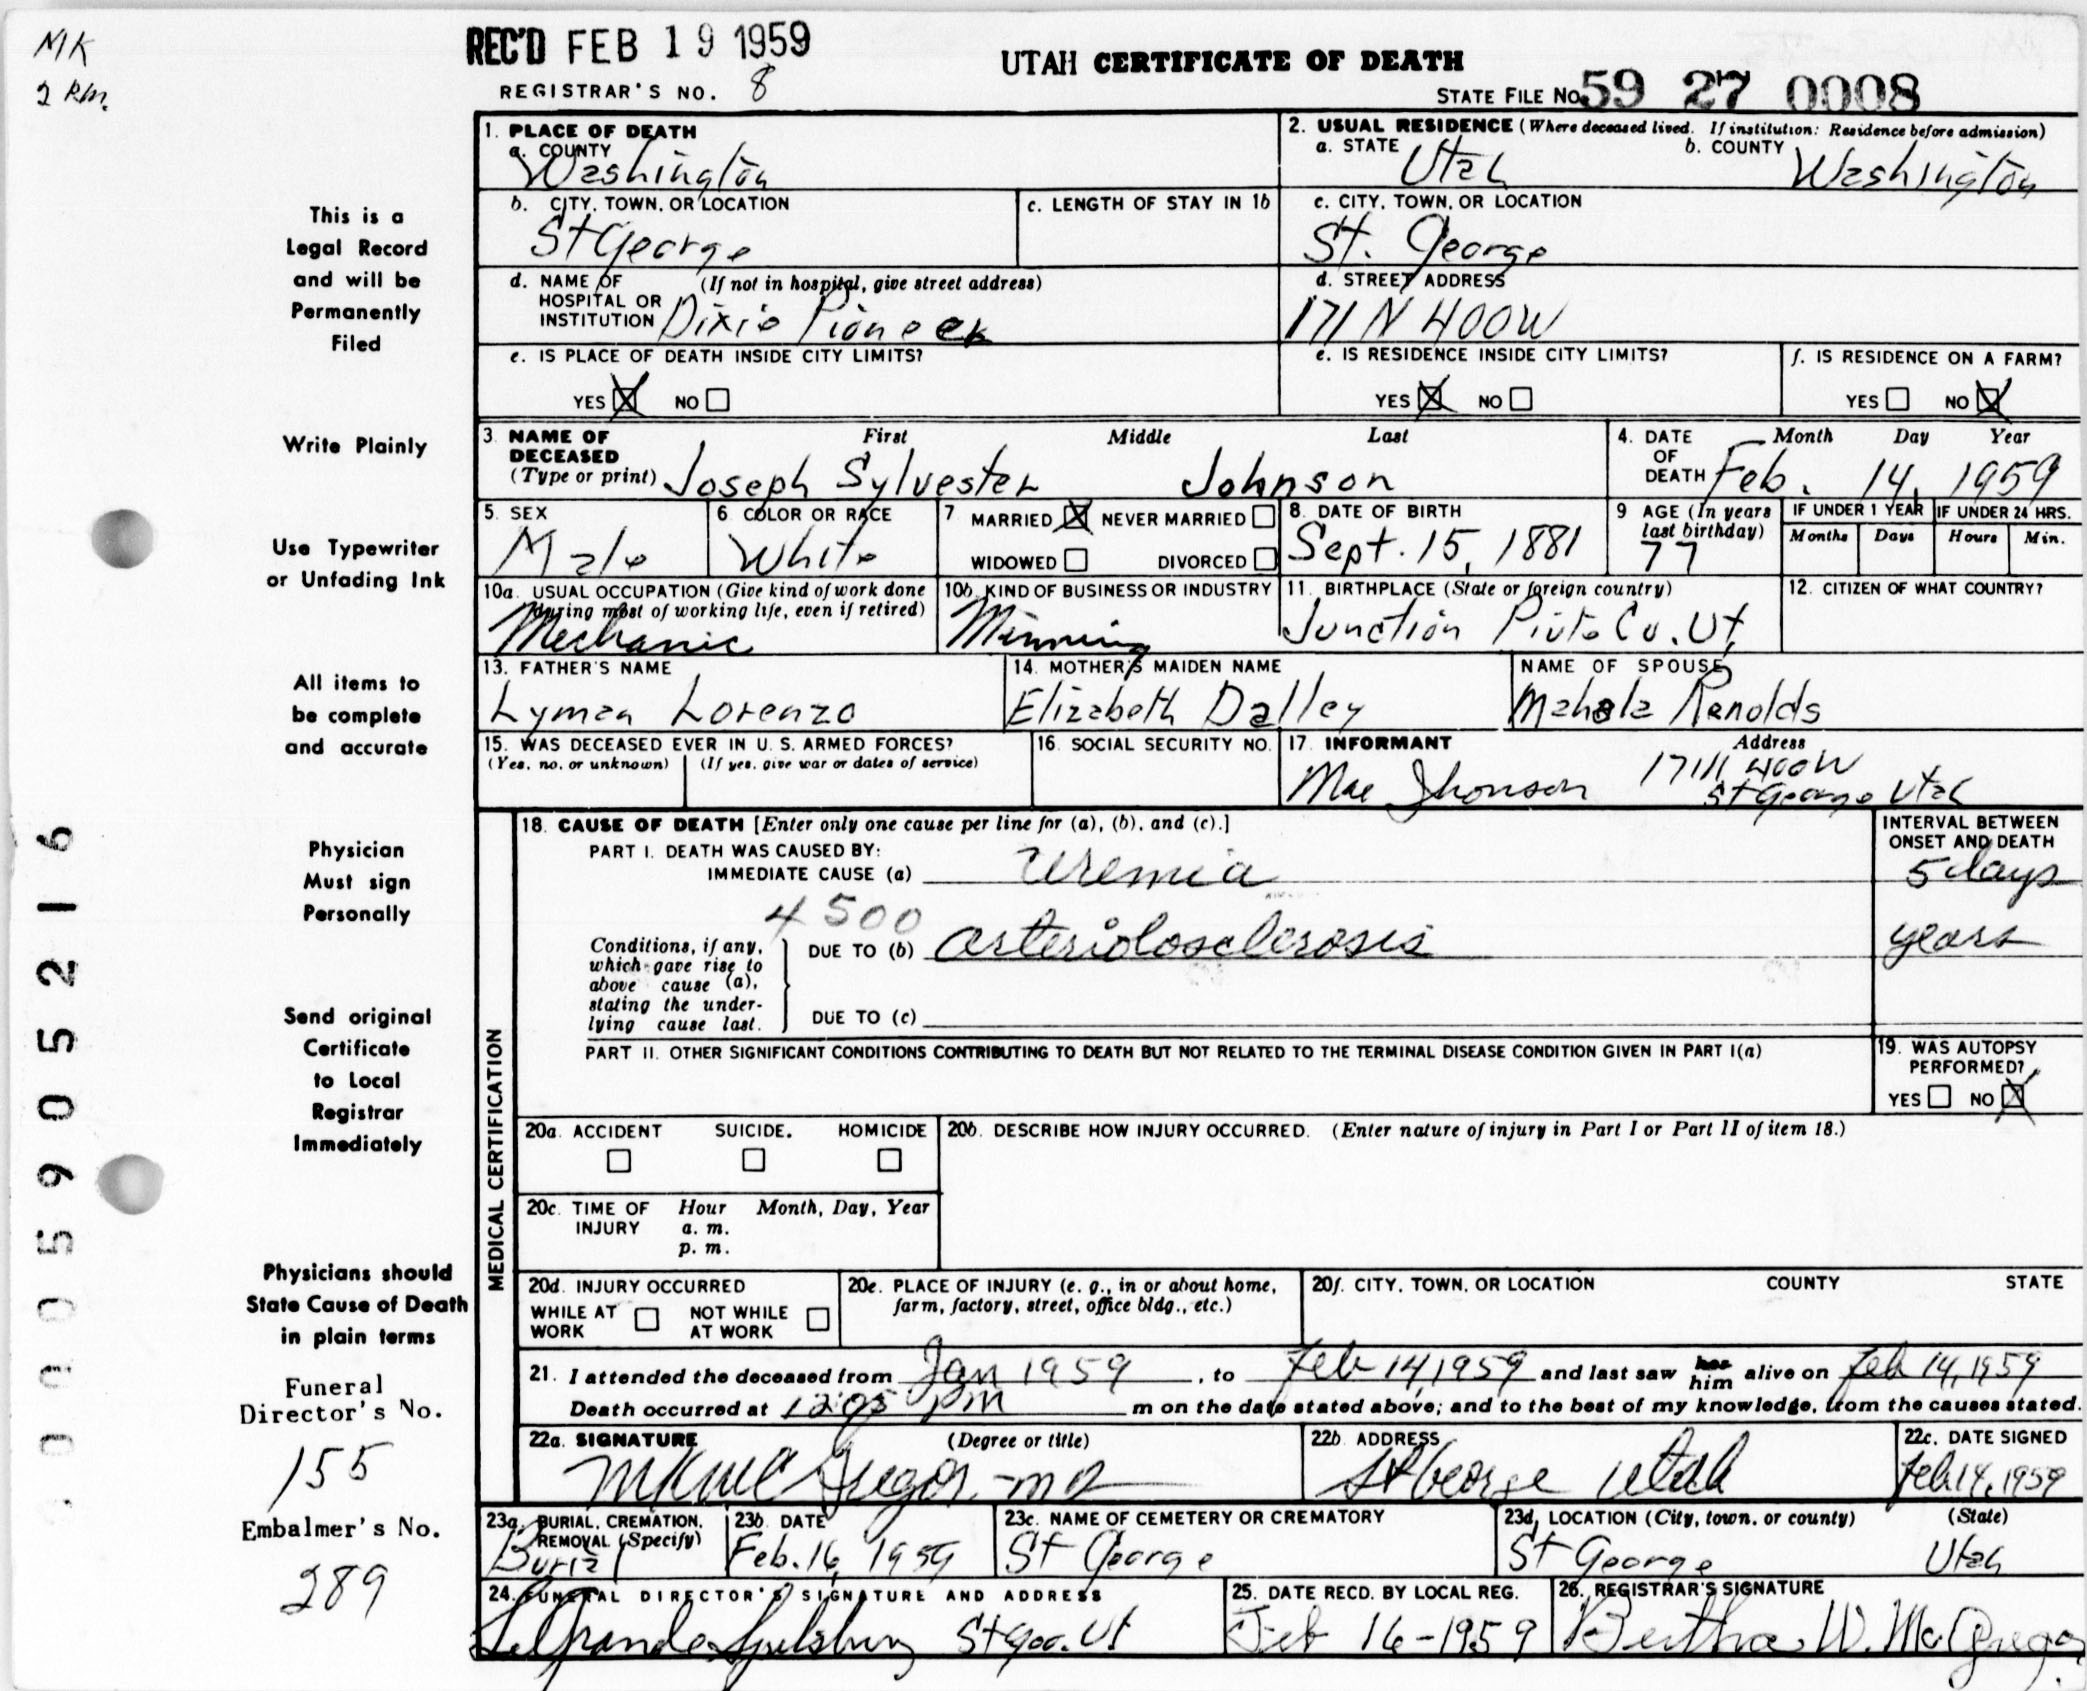 MK
2 RM.
REC'D FEB 19 1959
REGISTRAR'S NO. 8
UTAH CERTIFICATE OF DEATH
STATE FILE NO. 59 27 0008
This is a
Legal Record
and will be
Permanently
Filed
Write Plainly
Use Typewriter
or Unfading Ink
All items to
be complete
and accurate
Physician
Must sign
Personally
Send original
Certificate
to Local
Registrar
Immediately
Physicians should
State Cause of Death
in plain terms
Funeral
Director's No.
155
Embalmer's No.
289
005905216
1. PLACE OF DEATH
a. COUNTY
Washington
2. USUAL RESIDENCE (Where deceased lived. If institution: Residence before admission)
a. STATE Utah b. COUNTY Washington
b. CITY, TOWN, OR LOCATION
St George
c. LENGTH OF STAY IN 1b
c. CITY, TOWN, OR LOCATION
St. George
d. NAME OF (If not in hospital, give street address)
HOSPITAL OR
INSTITUTION Dixie Pioneer
d. STREET ADDRESS
171 N 400W
e. IS PLACE OF DEATH INSIDE CITY LIMITS?
YES X NO
e. IS RESIDENCE INSIDE CITY LIMITS?
YES X NO
f. IS RESIDENCE ON A FARM?
YES NO X
3. NAME OF DECEASED (Type or print) First Middle Last
Joseph Sylvester Johnson
4. DATE OF DEATH Month Day Year
Feb. 14, 1959
5. SEX
Male
6. COLOR OR RACE
White
7 MARRIED X NEVER MARRIED
WIDOWED DIVORCED
8. DATE OF BIRTH
Sept. 15, 1881
9 AGE (In years last birthday)
77
IF UNDER 1 YEAR
Months Days
IF UNDER 24 HRS.
Hours Min.
10a. USUAL OCCUPATION (Give kind of work done
during most of working life, even if retired)
Mechanic
10b. KIND OF BUSINESS OR INDUSTRY
Minning
11. BIRTHPLACE (State or foreign country)
Junction Piute Co. Ut.
12. CITIZEN OF WHAT COUNTRY?
13. FATHER'S NAME
Lyman Lorenzo
14. MOTHER'S MAIDEN NAME
Elizabeth Dalley
NAME OF SPOUSE
Mahala Renolds
15. WAS DECEASED EVER IN U. S. ARMED FORCES?
(Yes, no, or unknown) (If yes, give war or dates of service)
16. SOCIAL SECURITY NO.
17. INFORMANT Address
Mae Jhonson 171 N 400W
St George Utah
MEDICAL CERTIFICATION
18. CAUSE OF DEATH [Enter only one cause per line for (a), (b), and (c).]
INTERVAL BETWEEN
ONSET AND DEATH
PART I. DEATH WAS CAUSED BY:
IMMEDIATE CAUSE (a) Uremia 5 days
4500
Conditions, if any,
which gave rise to
above cause (a),
stating the under-
lying cause last.
DUE TO (b) arteriolosclerosis years
DUE TO (c)
PART II. OTHER SIGNIFICANT CONDITIONS CONTRIBUTING TO DEATH BUT NOT RELATED TO THE TERMINAL DISEASE CONDITION GIVEN IN PART I(a)
19. WAS AUTOPSY
PERFORMED?
YES NO X
20a. ACCIDENT SUICIDE. HOMICIDE
20b. DESCRIBE HOW INJURY OCCURRED. (Enter nature of injury in Part I or Part II of item 18.)
20c. TIME OF INJURY Hour Month, Day, Year
a. m.
p. m.
20d. INJURY OCCURRED
WHILE AT WORK NOT WHILE AT WORK
20e. PLACE OF INJURY (e. g., in or about home,
farm, factory, street, office bldg., etc.)
20f. CITY, TOWN, OR LOCATION COUNTY STATE
21. I attended the deceased from Jan 1959, to Feb 14, 1959 and last saw her him alive on Feb 14, 1959
Death occurred at 12:05 pm m on the date stated above; and to the best of my knowledge, from the causes stated.
22a. SIGNATURE (Degree or title)
McGregor - MD
22b. ADDRESS
St George Utah
22c. DATE SIGNED
Feb 14, 1959
23a. BURIAL, CREMATION,
REMOVAL (Specify)
Burial
23b. DATE
Feb. 16, 1959
23c. NAME OF CEMETERY OR CREMATORY
St George
23d. LOCATION (City, town, or county) (State)
St George Utah
24. FUNERAL DIRECTOR'S SIGNATURE AND ADDRESS
LeGrande Spilsbury St Geo. Ut
25. DATE RECD. BY LOCAL REG.
Feb 16-1959
26. REGISTRAR'S SIGNATURE
Bertha W. McGregor